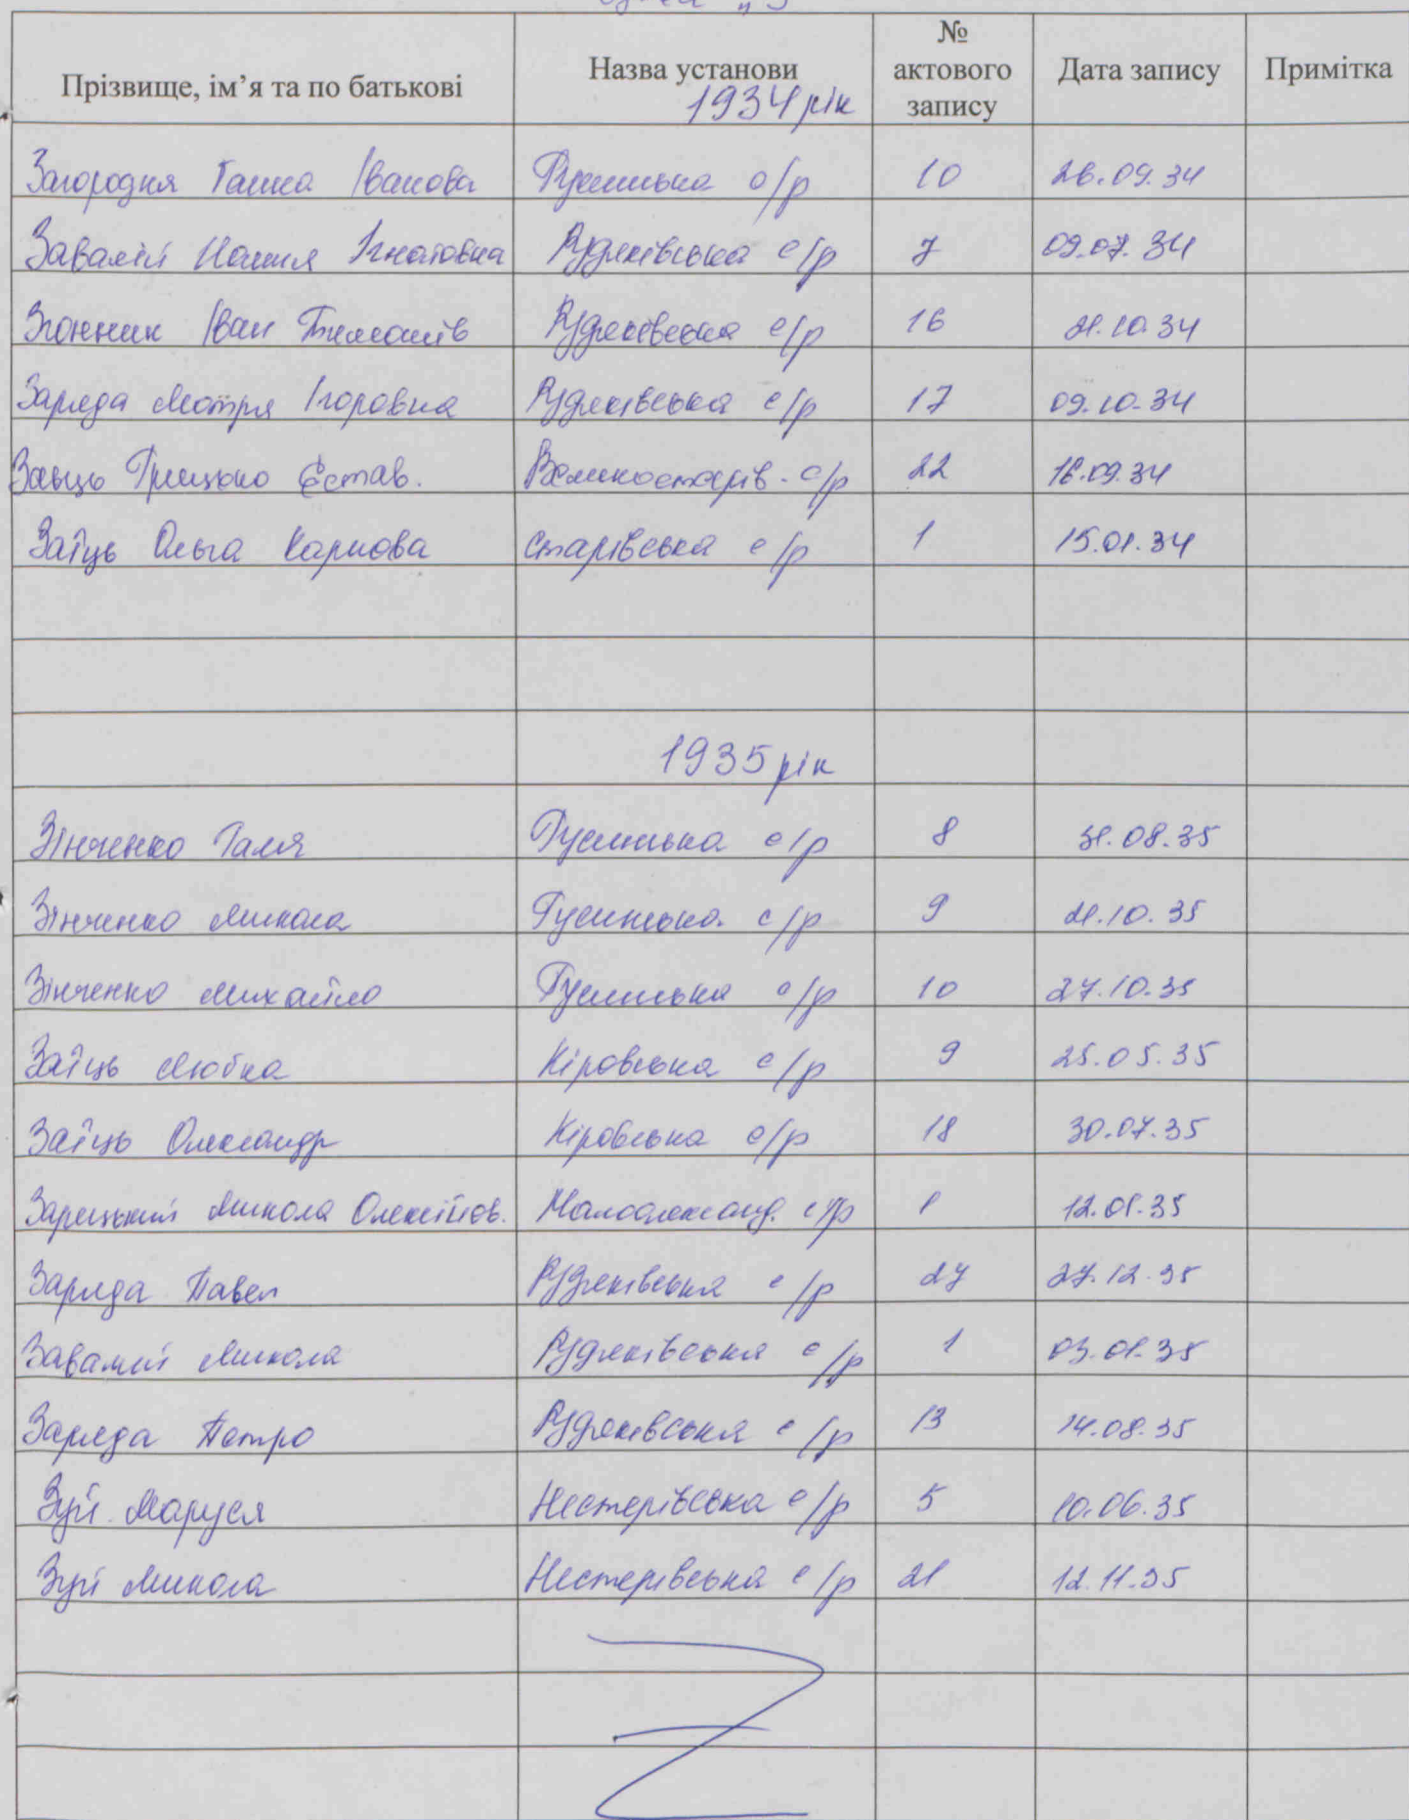 Прізвище, ім’я та по батькові Назва установи № актового запису Дата запису Примітка
1934 рік
Загородня Ганна Іванова Гусинська с/р 10 26.09.34
Завалій Настя Ігнатовна Рудяківська с/р 7 09.07.34
Згонник Іван Рудяківська с/р 16 21.10.34
Заряда Мотря Ігоровна Рудяківська с/р 17 09.10.34
Заєць Грицько Єстав. Великостарів. с/р 22 16.09.34
Заїць Ольга Карпова Старівська с/р 1 15.01.34
1935 рік
Зінченко Галя Гусинська с/р 8 31.08.35
Зінченко Микола Гусинська с/р 9 21.10.35
Зінченко Михайло Гусинська с/р 10 27.10.35
Заїць Любка Кіровська с/р 9 25.05.35
Заїць Олександр Кіровська с/р 18 30.07.35
Зарицький Микола Олексійов. Малоалександ. с/р 1 12.01.35
Заряда Павел Рудяківська с/р 27 27.12.35
Завалий Микола Рудяківська с/р 1 03.01.35
Заряда Петро Рудяківська с/р 13 14.08.35
Зуй Маруся Нестерівська с/р 5 10.06.35
Зуй Микола Нестерівська с/р 21 12.11.35